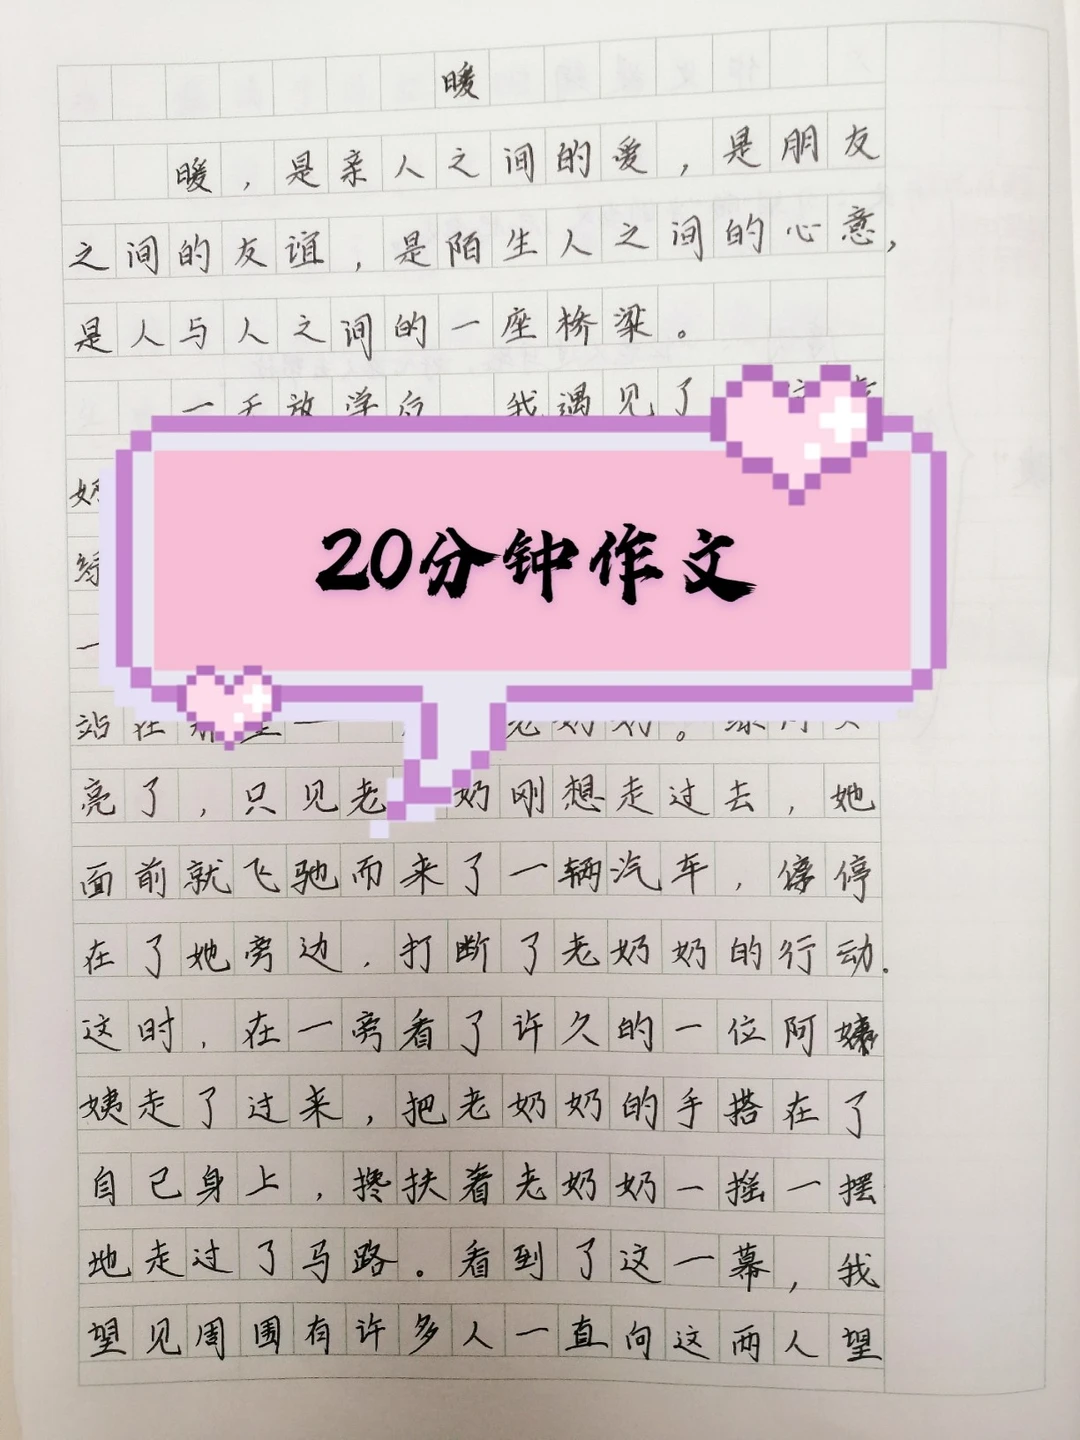 暖
暖，是亲人之间的爱，是朋友
之间的友谊，是陌生人之间的心意，
是人与人之间的一座桥梁。
一天放学后 我遇见了
20分钟作文
站在那里一 老奶奶。绿灯又
亮了，只见老 奶刚想走过去，她
面前就飞驰而来了一辆汽车，停停
在了她旁边，打断了老奶奶的行动.
这时，在一旁看了许久的一位阿
姨走了过来，把老奶奶的手搭在了
自己身上，搀扶着老奶奶一摇一摆
地走过了马路。看到了这一幕，我
望见周围有许多人一直向这两人望